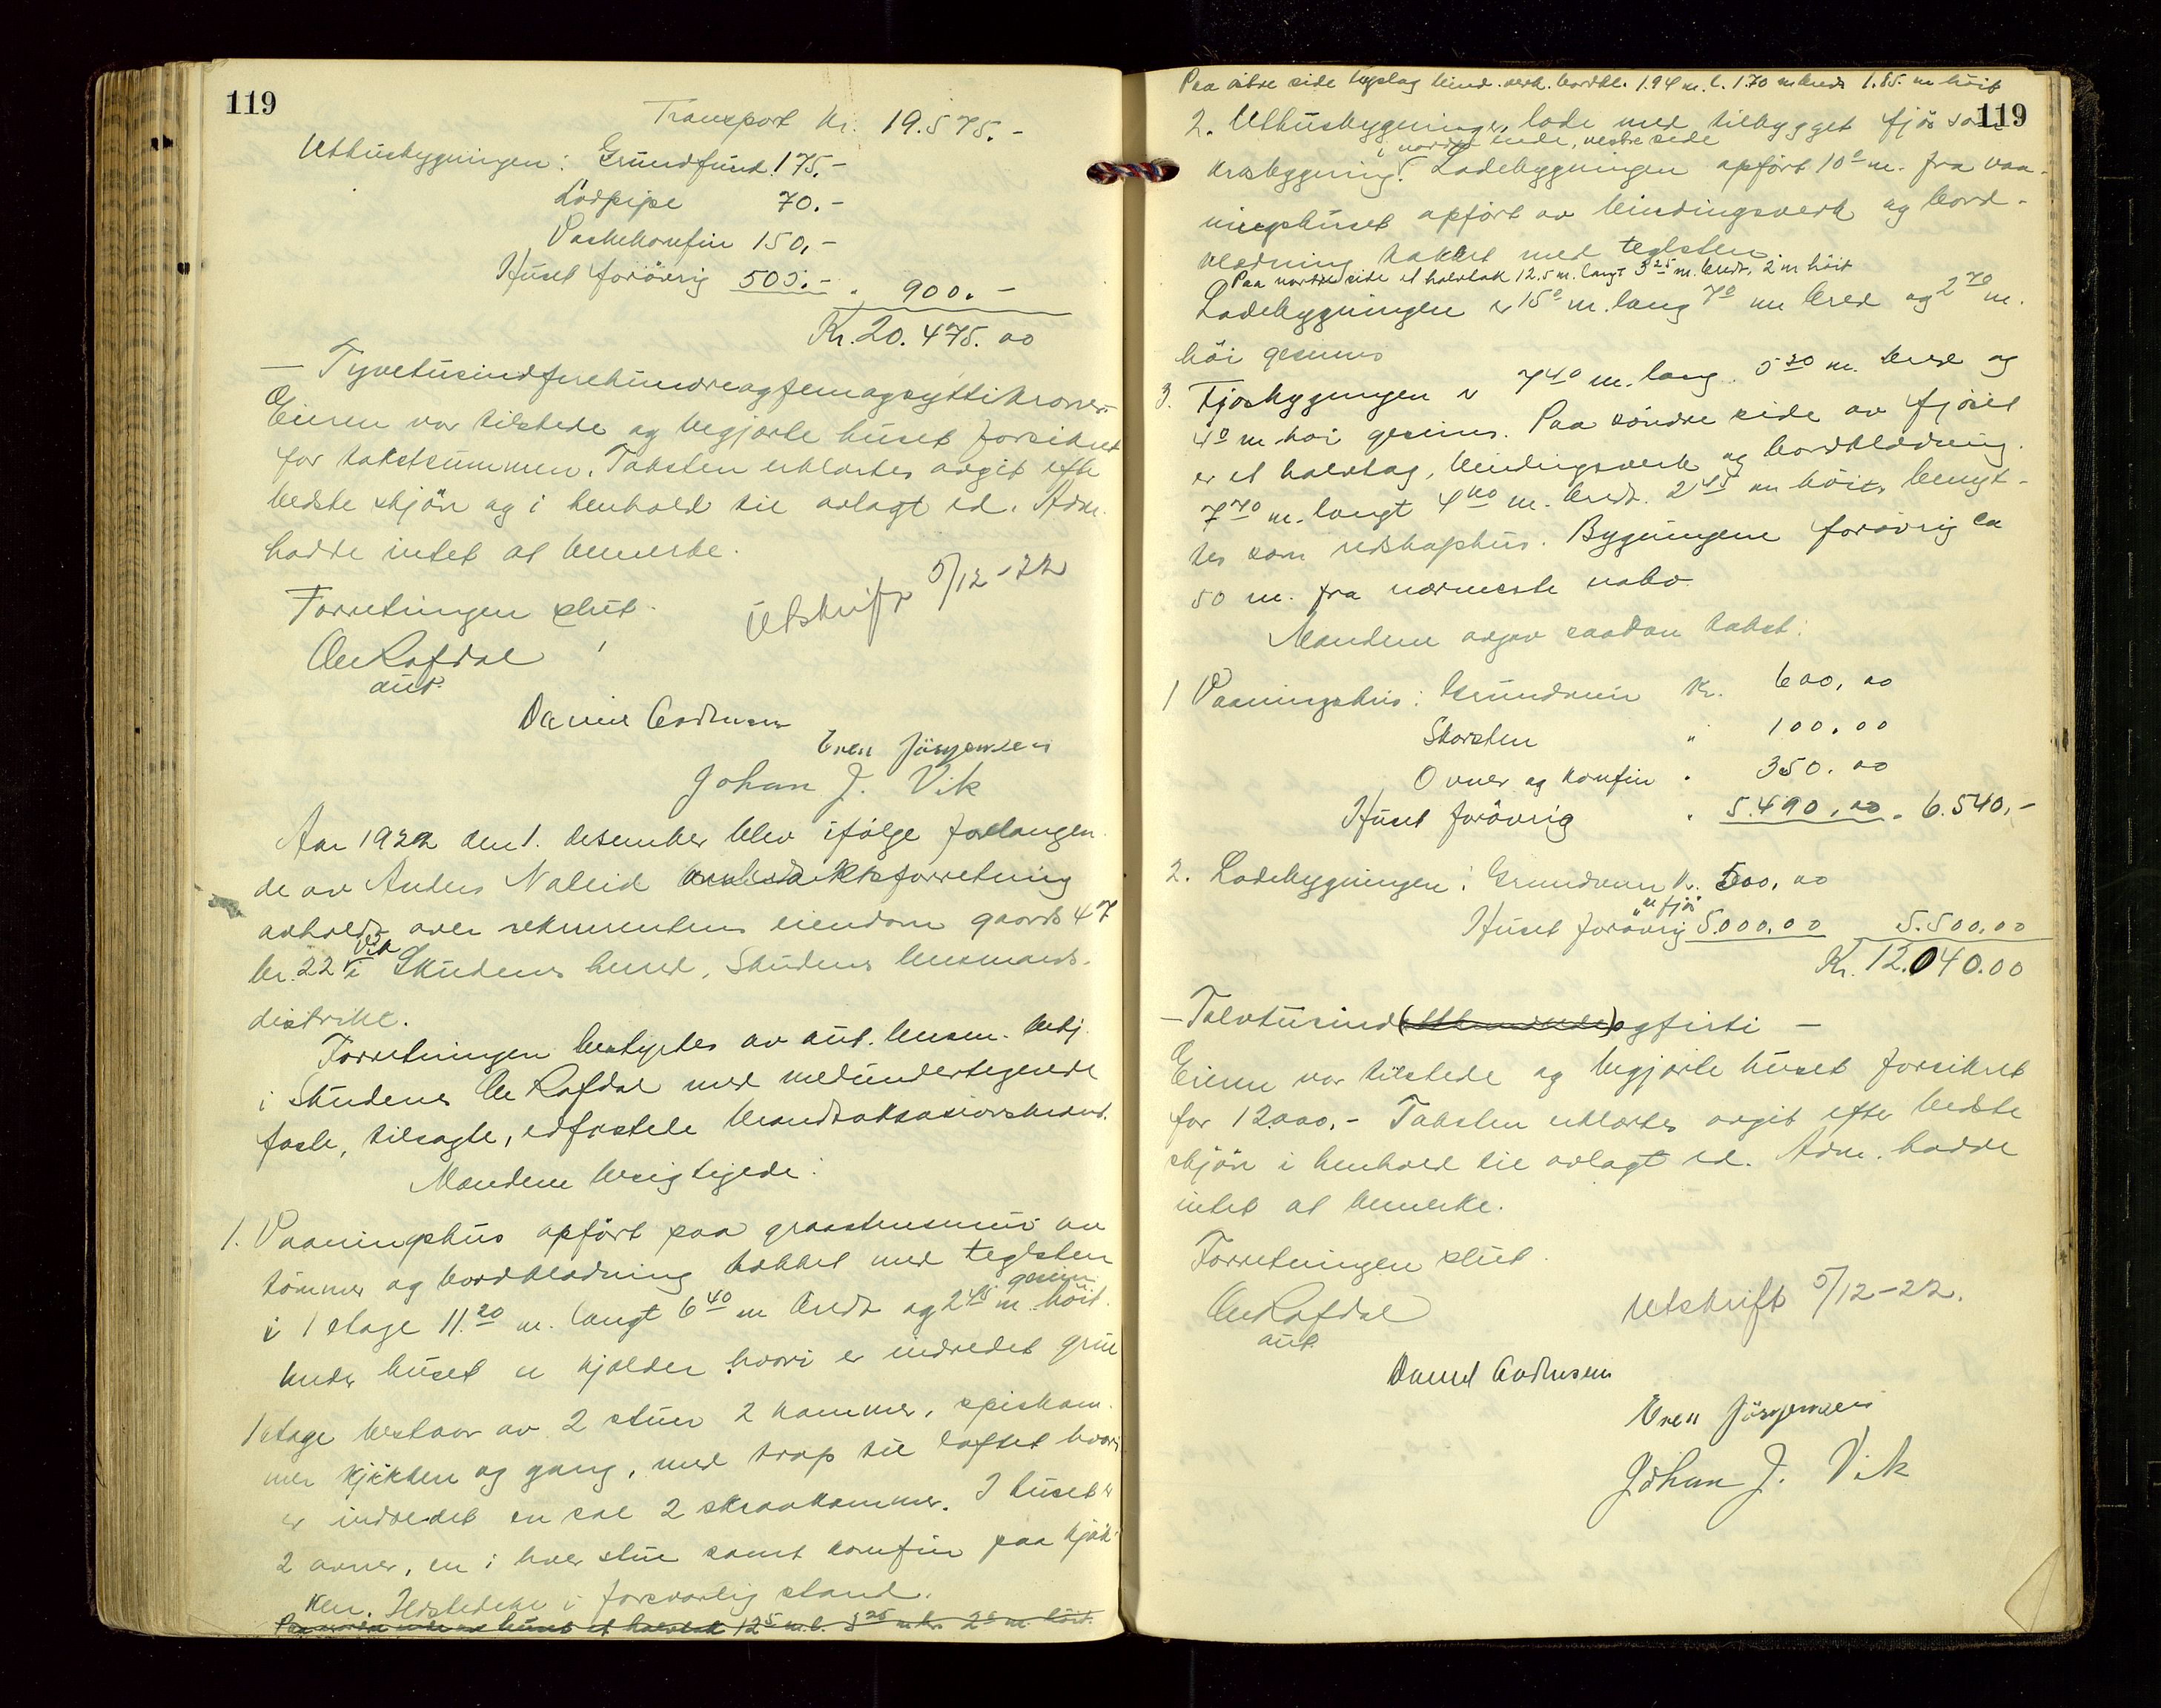 119
Transport Kr. 19.575.-
Uthusbygningen: Grundfund. 175.-
Lodpipe 70.-
Vaskekomfur 150,-
Huset forövrig 505.- " 900.-
Kr. 20.475.00
— Tyvetusindfirehundreogfemogsyttikroner-
Eieren var tilstede og begjærte huset forsikret
for takstsummen. Taksten erklærtes avgit efter
bedste skjön og i henhold til avlagt ed. Adm.
hadde intet at bemerke.
Forretningen slut.
Utskrift 5/12-22
Ole Rafdal
aut.
Daniel Andreasen
Sven Jörgensen
Johan J. Vik
Aar 1922 den 1. desember blev ifölge forlangen-
de av Anders Naleid branntakstforretning
avholdt over rekvirentens eiendom gaards 47
br. 22 Vik i Skudenes herred, Skudenes lensmands-
distrikt.
Forretningen bestyrtes av aut. lensm. betj.
i Skudenes Ole Rafdal med medundertegnede
faste, tilsagte, edfæstede brandtaksasionsmænd.
Mændene besigtigede:
1. Vaaningshus opfört paa graastensmur av
tömmer og bordklædning tækket med teglsten
i 1 etage 11.20 m. langt 6 40 m bredt og 2 45 m. höit. gesims
Under huset er kjælder hvori er indredet grue
1 etage bestaar av 2 stuer 2 kammer, spiskam-
mer kjökken og gang, med trap til loftet hvori
er indredet en sal 2 skraakammer. I huset er
2 ovner, en i hver stue samt komfur paa kjök-
ken. Ildstedene i forsvarlig stand.
Paa nordre side av huset et halvtak 12 5 m.l. 3 25 m.br. 2 0 m. höit.
Paa östre side tilbyg bind.verk. bordkl. 1.94 m. l. 1.70 m bredt 1.85 m höit
119
2. Uthusbygninger, lade med tilbygget fjös som
i nordre ende, vestre side
krosbygning. Ladebygningen opfört 10 0 m. fra vaa-
ningshuset opfört av bindingsverk og bord-
klædning tækket med teglsten.
Paa nordre side et halvtak 12.5 m. langt 3 25 m. bredt, 2 m höit
Ladebygningen er 15 0 m. lang 7 0 m bred og 2 70 m.
höi gesims
3. Fjösbygningen er 7 40 m. lang 5 20 m. bred og
4 0 m höi gesims. Paa söndre side av fjöset
er et halvtag, bindingsverk og bordklædning.
7 70 m. langt 4 40 m. bredt. 2 45 m höit, benyt-
tes som redskapshus. Bygningene forövrig ca
50 m. fra nærmeste nabo.
Mændene avgav saadan takst:
1 Vaaningshus: Grundmur Kr. 600,00
Skorsten " 100.00
Ovner og komfur " 350.00
Huset forövrig " 5.490,00 " 6.540,-
2. Ladebygningen: Grundmur Kr. 500,00
m fjös
Huset forövrig " 5000.00 5.500.00
Kr. 12.040.00
— Tolvtusind ogfirti —
Eieren var tilstede og begjærte huset forsikret
for 12000,- Taksten erklærtes avgit efter bedste
skjön i henhold til avlagt ed. Adm. hadde
intet at bemerke.
Forretningen slut.
Ole Rafdal
aut.
Utskrift 5/12-22.
Daniel Andreasen
Sven Jörgensen
Johan J. Vik